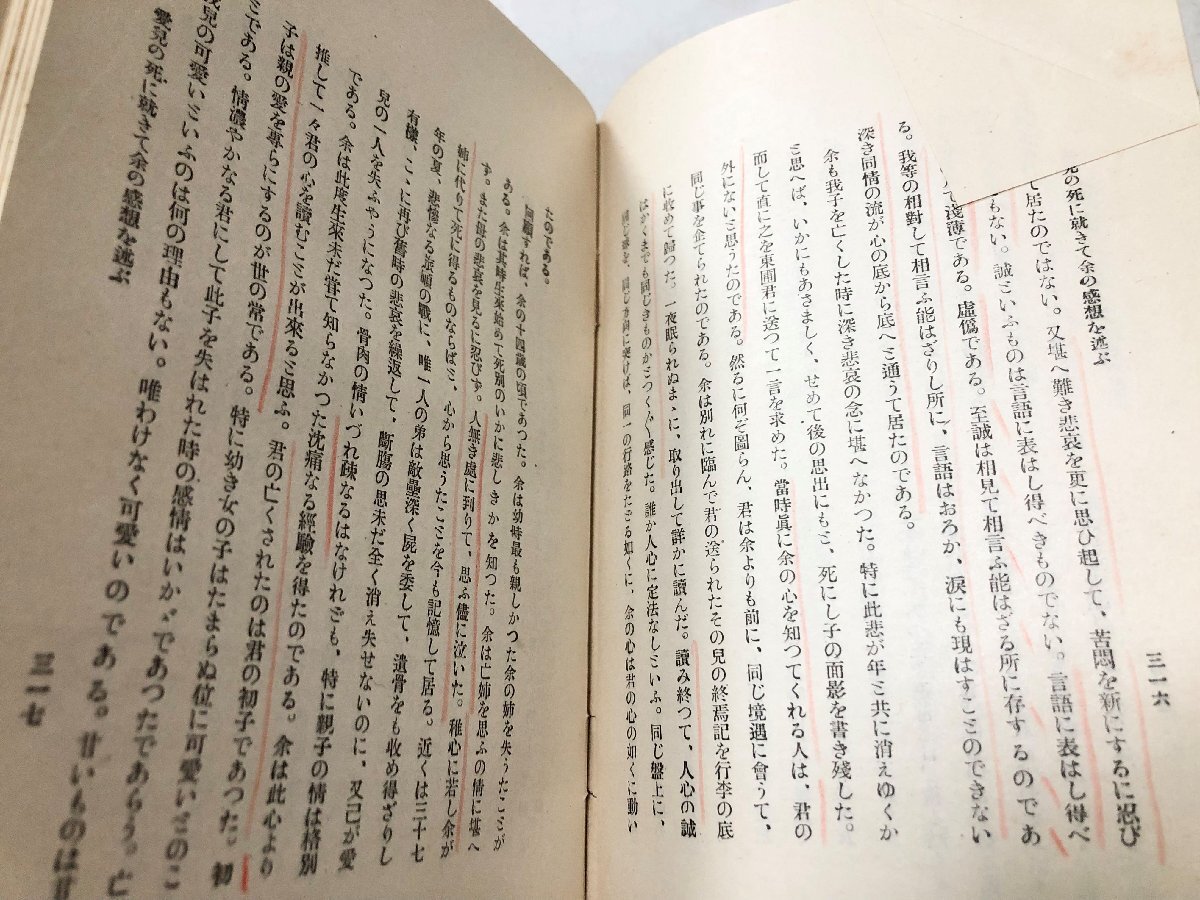 三一六
児の死に就きて余の感想を述ぶ
て居たのではない。又堪へ難き悲哀を更に思ひ起して、苦悶を新にするに忍び
もない。誠といふものは言語に表はし得べきものでない。言語に表はし得べ
て淺薄である。虛僞である。至誠は相見て相言ふ能はざる所に存するのであ
る。我等の相對して相言ふ能はざりし所に、言語はおろか、涙にも現はすことのできない
深き同情の流が心の底から底へと通うて居たのである。
余も我子を亡くした時に深き悲哀の念に堪へなかつた。特に此悲が年と共に消えゆくか
と思へば、いかにもあさましく、せめて後の思出にもと、死にし子の面影を書き殘した。
而して直に之を東圃君に送つて一言を求めた。當時眞に余の心を知つてくれる人は、君の
外にないと思うたのである。然るに何ぞ圖らん、君は余よりも前に、同じ境遇に會うて、
同じ事を企てられたのである。余は別れに臨んで君の送られたその兒の終焉記を行李の底
に收めて歸つた。一夜眠られぬまゝに、取り出して詳かに讀んだ。讀み終つて、人心の誠
はかくまでも同じきものかとつくづく感じた。誰か人心に定法なしといふ。同じ盤上に、
同じ球を、同じ方向に突けば、同一の行路をたどる如くに、余の心は君の心の如くに動い
たのである。
回顧すれば、余の十四歲の頃であつた。余は幼時最も親しかつた余の姉を失うたことが
ある。余は其時生來始めて死別のいかに悲しきかを知つた。余は亡姉を思ふの情に堪へ
ず。また母の悲哀を見るに忍びず。人無き處に到りて、思ふ儘に泣いた。稚心に若し余が
姉に代りて死に得るものならばと、心から思うたことを今も記憶して居る。近くは三十七
年の夏、悲慘なる旅順の戰に、唯一人の弟は敵壘深く屍を委して、遺骨をも收め得ざりし
有樣、こゝに再び舊時の悲哀を繰返して、斷膓の思未だ全く消え失せないのに、又己が愛
兒の一人を失ふやうになつた。骨肉の情いづれ疎なるはなけれども、特に親子の情は格別
である。余は此度生來未だ曾て知らなかつた沈痛なる經驗を得たのである。余は此心より
推して一々君の心を讀むことが出來ると思ふ。君の亡くされたのは君の初子であつた。初
子は親の愛を專らにするのが世の常である。特に幼き女の子はたまらぬ位に可愛いとのこ
とである。情濃やかなる君にして此子を失はれた時の感情はいかゞであつたであらう。亡
我兒の可愛いといふのは何の理由もない。唯わけなく可愛いのである。甘いものは甘
愛兒の死に就きて余の感想を述ぶ
三一七